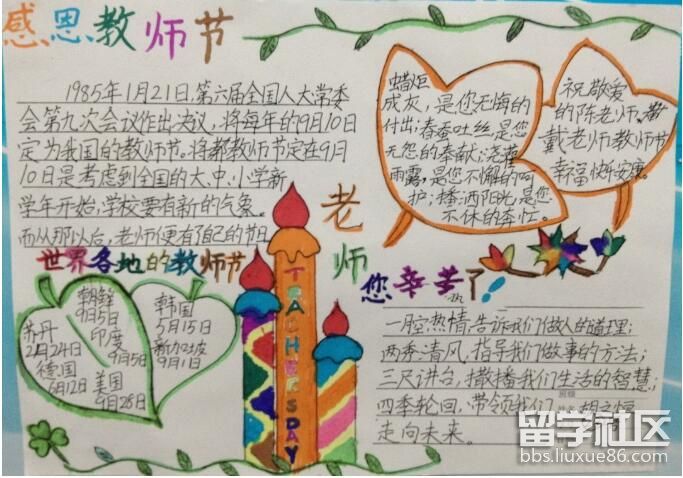 感恩教师节
1985年1月21日,第六届全国人大常委
会第九次会议作出决议,将每年的9月10日
定为我国的教师节。将都教师节定在9月
10日是考虑到全国的大、中、小学新
学年开始,学校要有新的气象。
而从那以后,老师便有了自己的节日
蜡炬
成灰,是您无悔的
付出;春蚕吐丝是您
无怨的奉献;浇灌
雨露,是您不懈的呵
护;播洒阳光,是您
不休的责任。
祝敬爱
的陈老师、戴
戴老师教师节
幸福快乐安康。
世界各地的教师节
朝鲜
9月5日
印度
9月5日
苏丹
2月24日
德国
6月12日
美国
9月28日
韩国
5月15日
新加坡
9月1日
TEACHERSDAY
老师
您辛苦了!
一月空热情,告诉我们做人的道理;
两季清风,指导我们做事的方法;
三尺讲台,撒播我们生活的智慧;
四季轮回,带领我们
走向未来。
留学社区
bbs.liuxue86.com